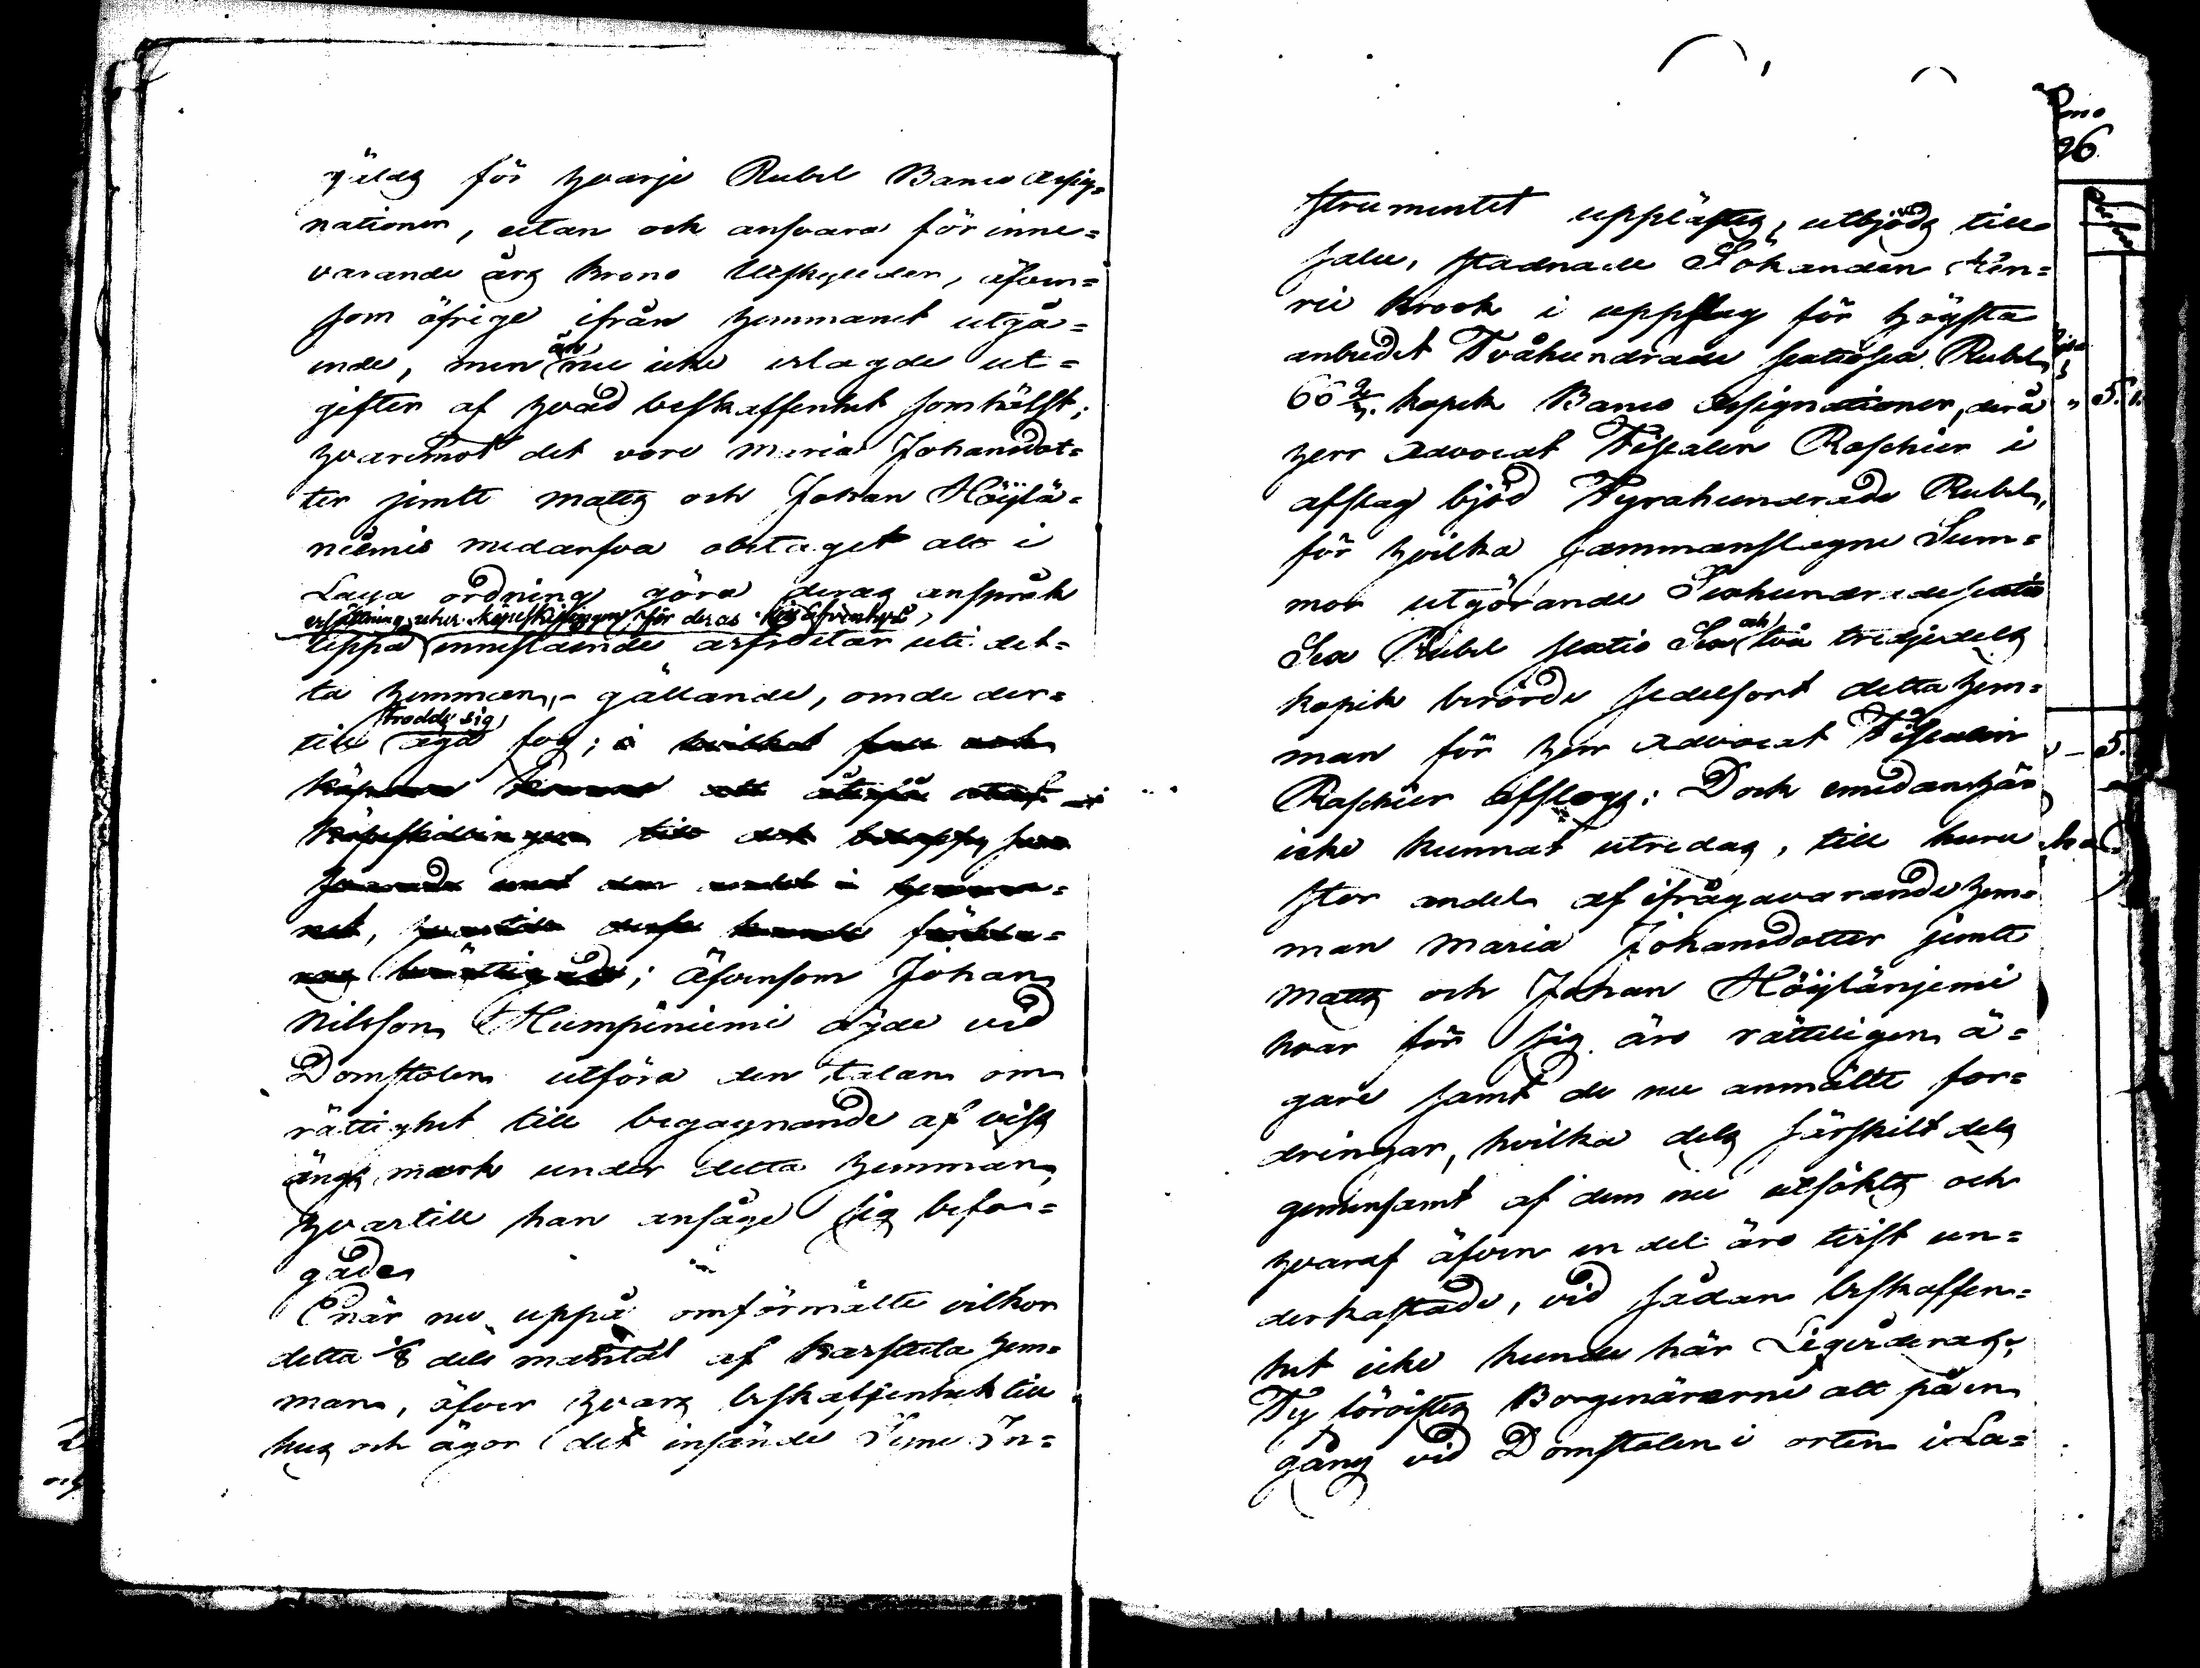 gälds för hvarje Rubel Banco Assig=
nationer, utan och ansvara för inne=
varande års krono utskylder, äfven=
som öfrige ifrån hemmanet utgå=
ende, men än nu icke erlagde ut=
gifter af hvad beskaffenhet somhälst;
hvaremot det vore Maria Johansdot=
ter jemte Matts och Johan Höylä=
niemis medarfva obetaget att i
Laga ordning göra deras anspråk
ersättning utur köpeskillingen för deras
uppå innestående arfsdelar uti det=
ta hemman, gällande, om de der=
troddes sig
till äga fog; i hvilket fall och
köparen kommer att återfå utaf
köpeskillingen till det belopp som
svarade emot den andel i hemma=
net, hvartill desse kunde förkla=
ras berättigade; Äfvensom Johan
Nilsson Humpiniemi ägde vid
Domstolen utföra den talan om
rättighet till begagnande af viss
ängs mark under detta hemman,
hvartill han ansåge sig befo=
gad.
När nu uppå omförmälte vilkor
detta 1/8 dels mantal af Karstula hem=
man, öfver hvars beskaffenhet till
hus och ägor det insände Syne In=
strumentet upplästes, utbjöds till
salu, stadnade Sökanden Hen=
ric Krook i uppslag för högsta
anbudet Tvåhundrade sextiosex Rubel
66 2/3 kopek Banco Assignationer, derå
Herr Advocat Fiscalen Raschier i
afslag bjöd Fyrahundrade Rubel,
för hvilka sammanslagne Sum=
mor utgörande Sexhundradesextio
Sex Rubel sextio Sex och två tredjedels
kopek berörde sedelsort detta hem=
man för Herr Advocat Fiscalen
Raschier afslogs: Doch emedan här
icke kunnat utredas, till huru
stor andel af ifrågavarande hem=
man Maria Johansdotter jemte
Matts och Johan Höylänjemi
hvar för sig äro rätteligen ä=
gare samt de nu anmälte for=
dringar, hvilka dels särskilt dels
gemensamt af dem nu utsökts och
hvaraf äfven en del äro tvist un=
derkastade, vid sådan beskaffen=
het icke kunde här Liqvideras,
Ty löröistes Borgenärerne att på en
gång vid Domstolen i orten i La=